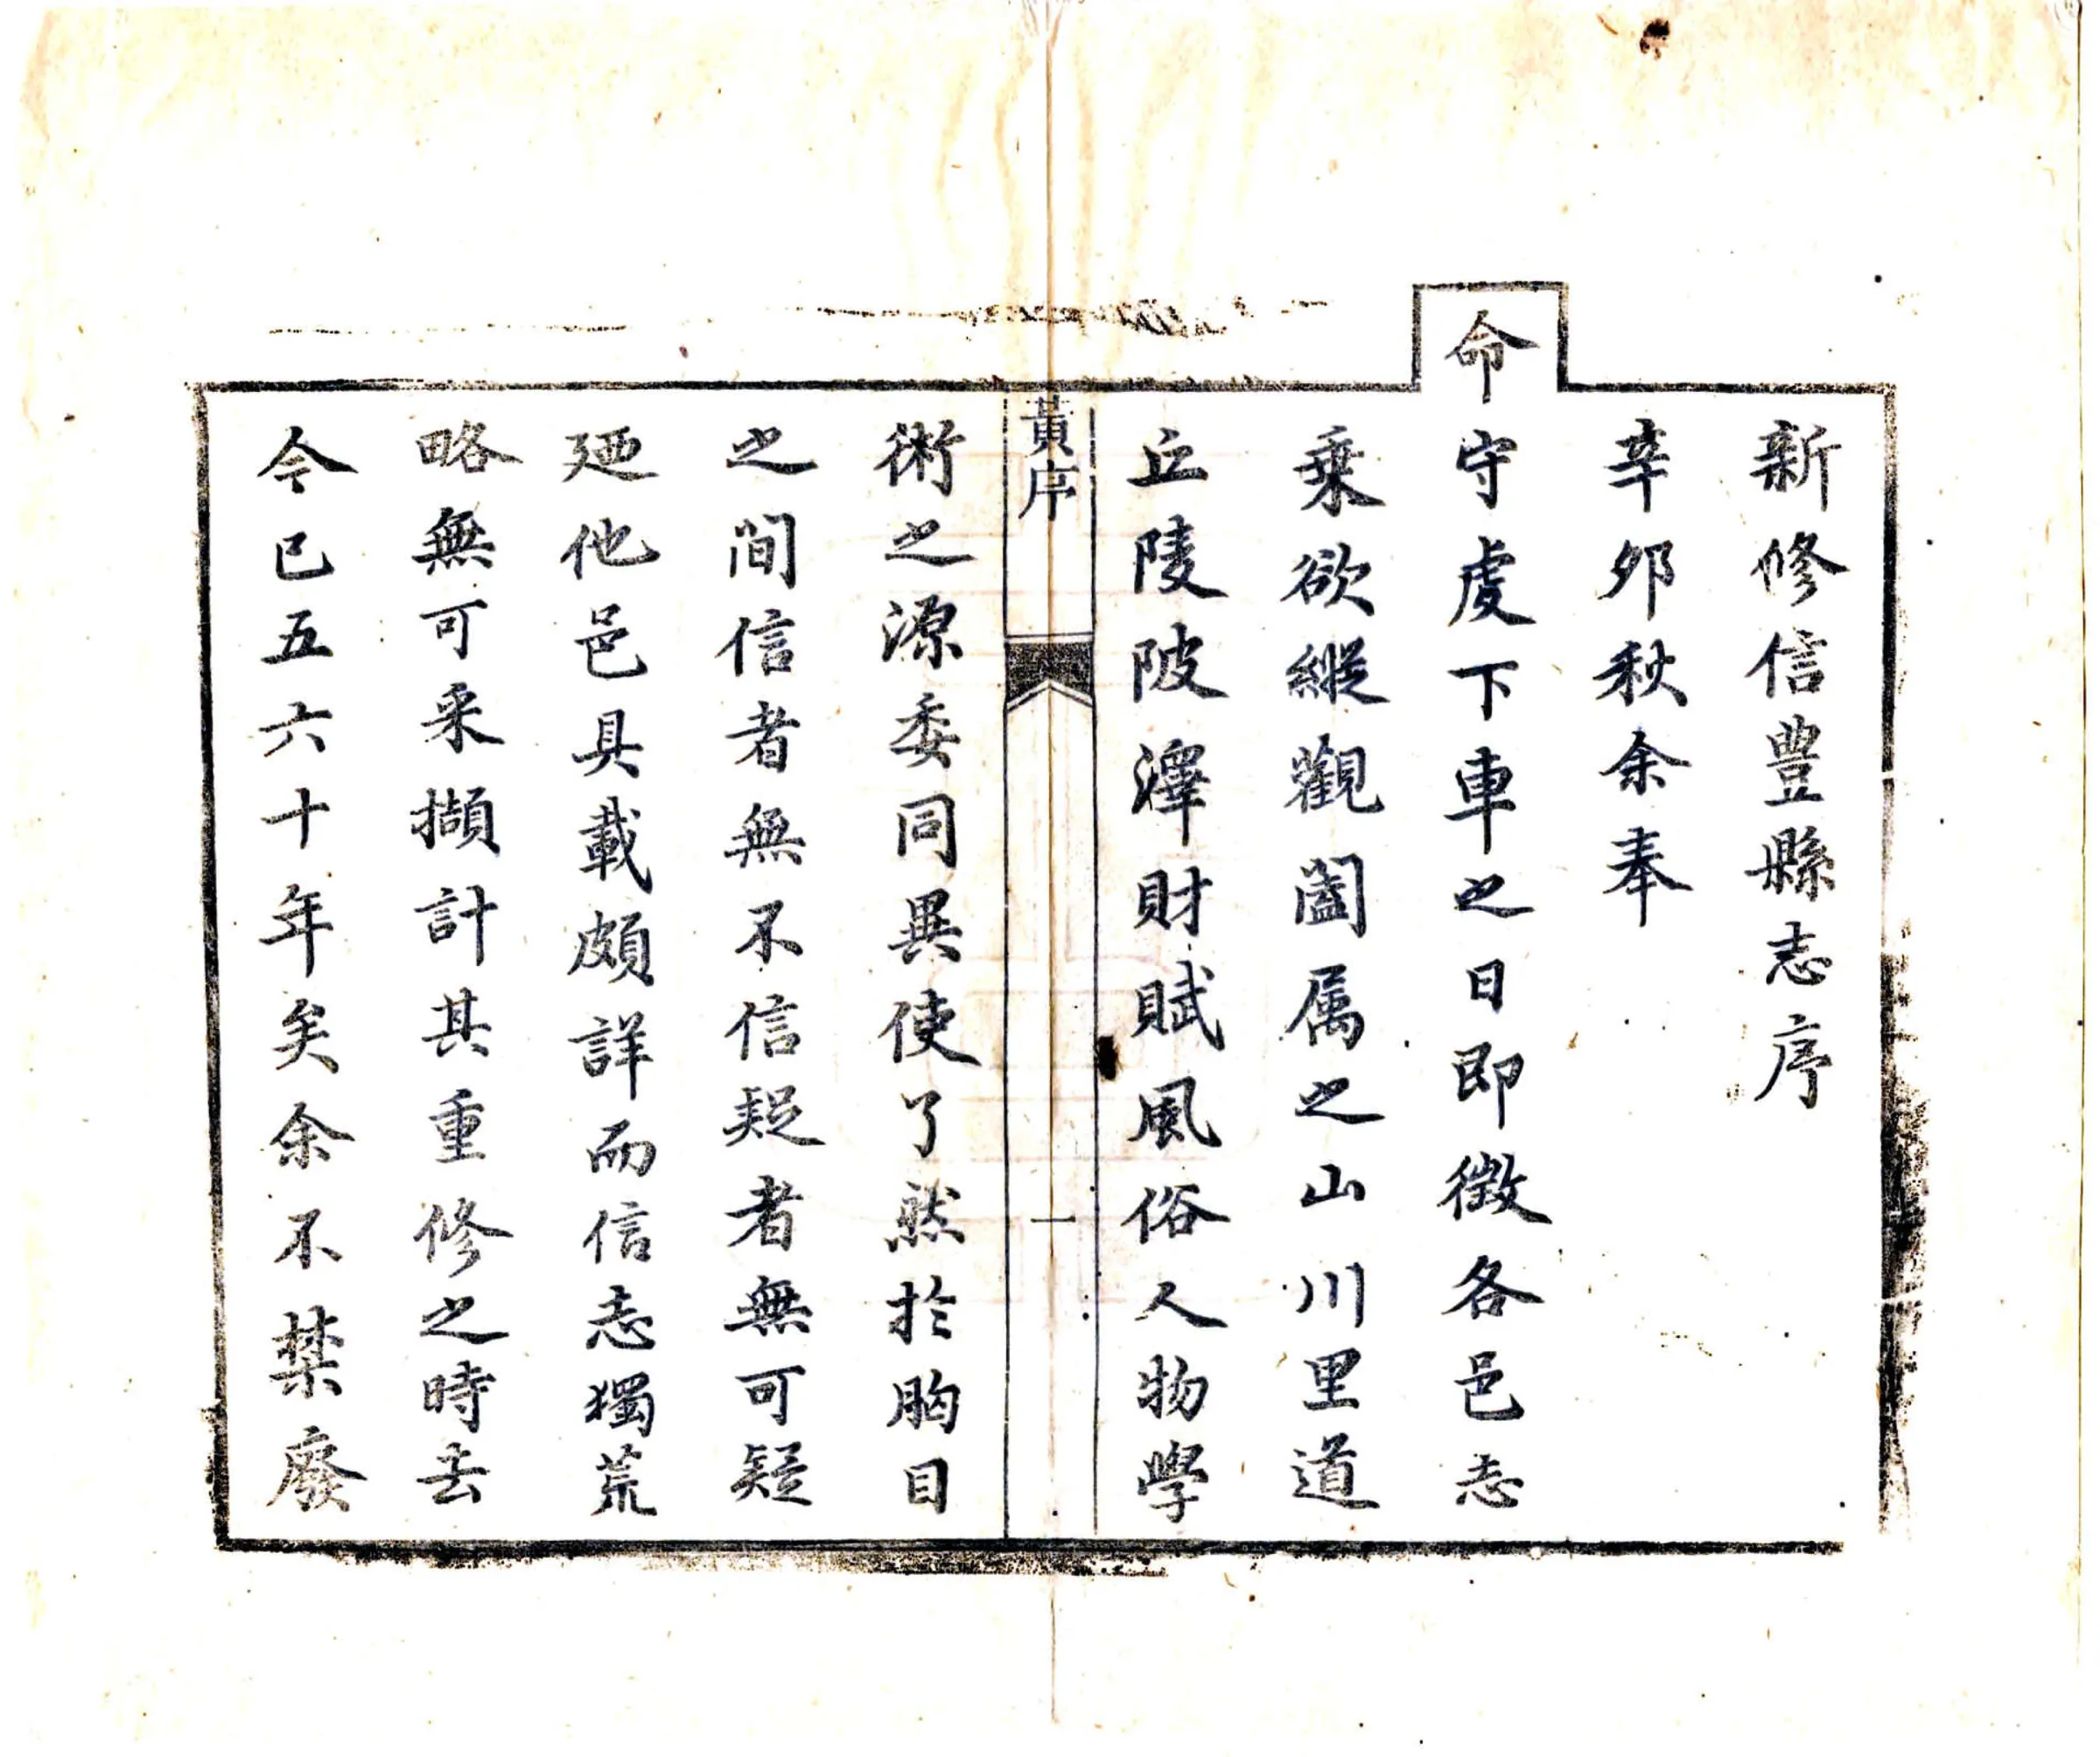 新修信豊縣志序
辛夘秋余奉
命守虔下車之日即徵各邑志
乗欲縱觀闔属之山川里道
丘陵陂澤財賦風俗人物學
黃序
一
術之源委同異使了然於胸目
之間信者無不信疑者無可疑
廼他邑具載頗詳而信志獨荒
略無可采擷計其重修之時去
今已五六十年矣余不禁廢